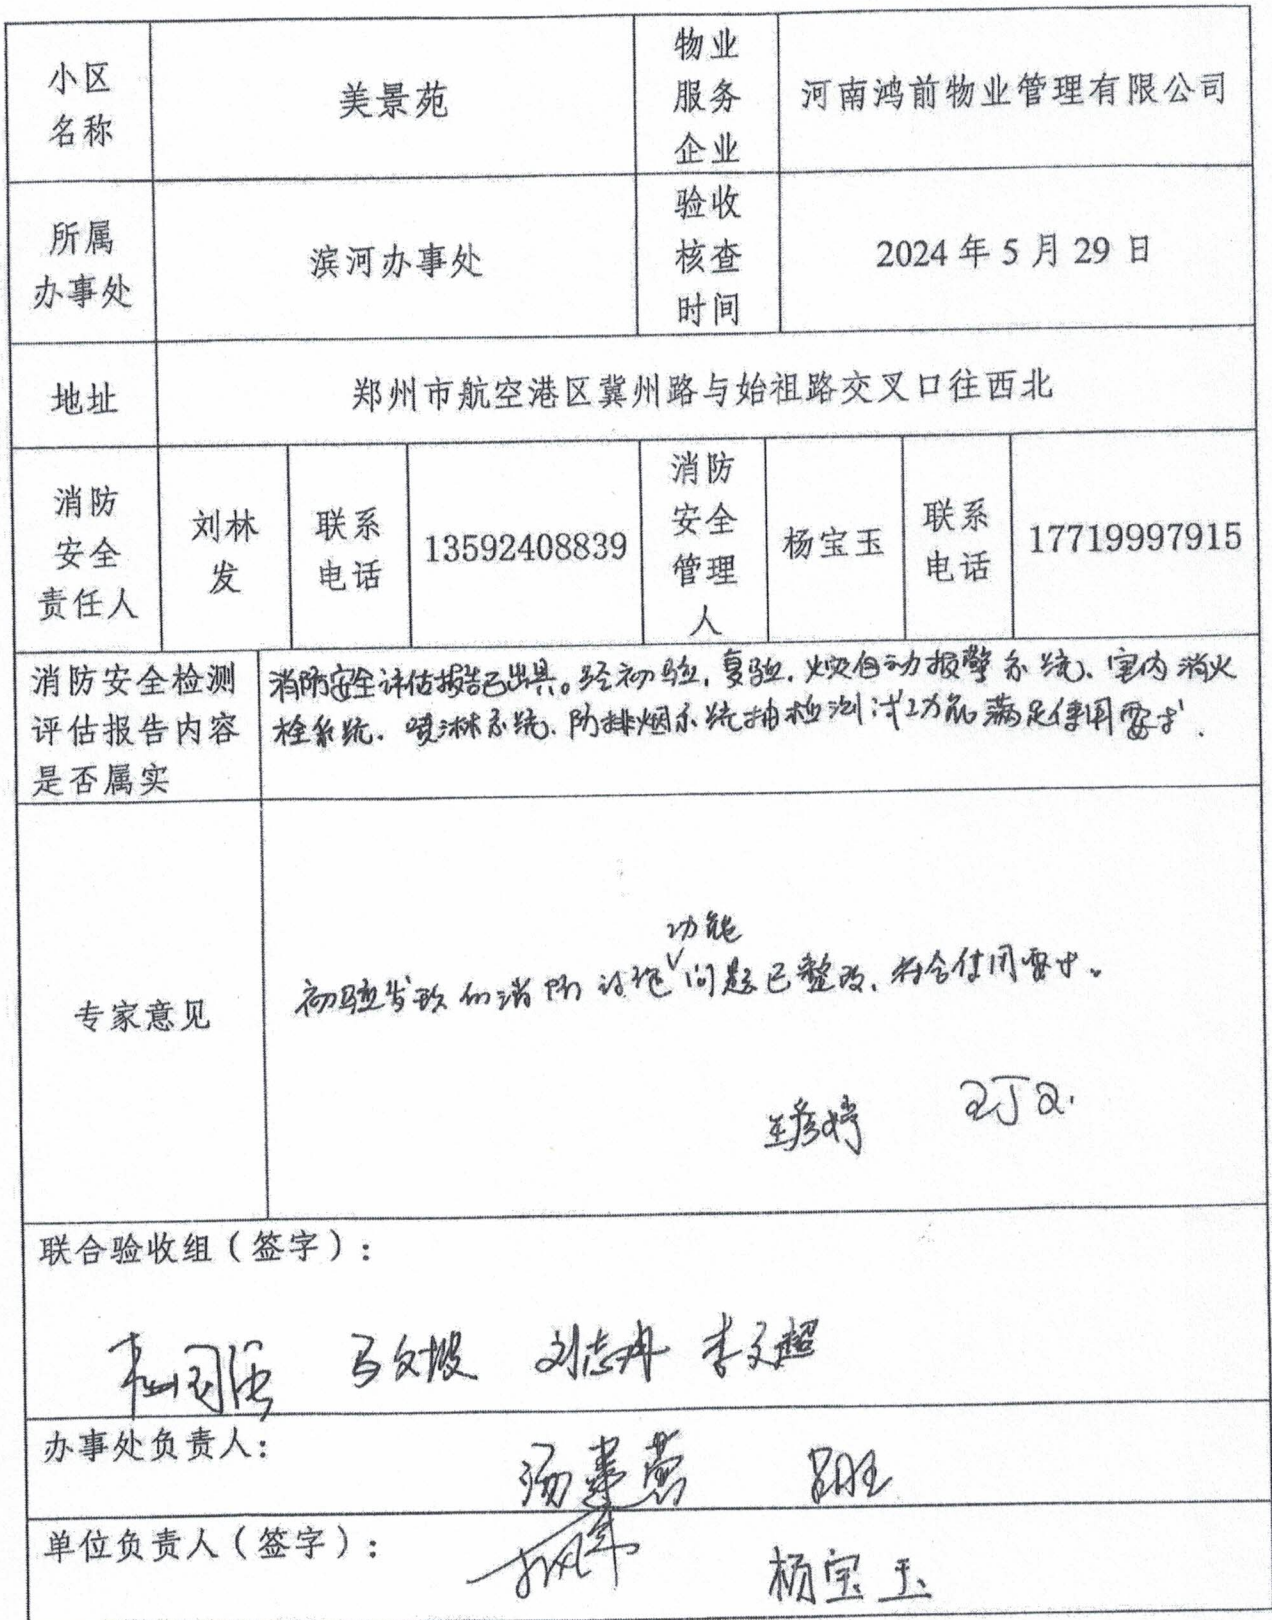 小区
名称
美景苑
物业
服务
企业
河南鸿前物业管理有限公司
所属
办事处
滨河办事处
验收
核查
时间
2024 年 5 月 29 日
地址
郑州市航空港区冀州路与始祖路交叉口往西北
消防
安全
责任人
刘林
发
联系
电话
13592408839
消防
安全
管理
人
杨宝玉
联系
电话
17719997915
消防安全检测
评估报告内容
是否属实
消防安全评估报告已出具。经初验,复验,火灾自动报警系统、室内消火
栓系统、喷淋系统、防排烟系统抽检测试功能满足使用要求.
专家意见
功能
初验发现的消防设施问题已整改,符合使用要求。
联合验收组（签字）:
马文坡 刘志丹 李文超
办事处负责人:
单位负责人（签字）:
杨宝玉